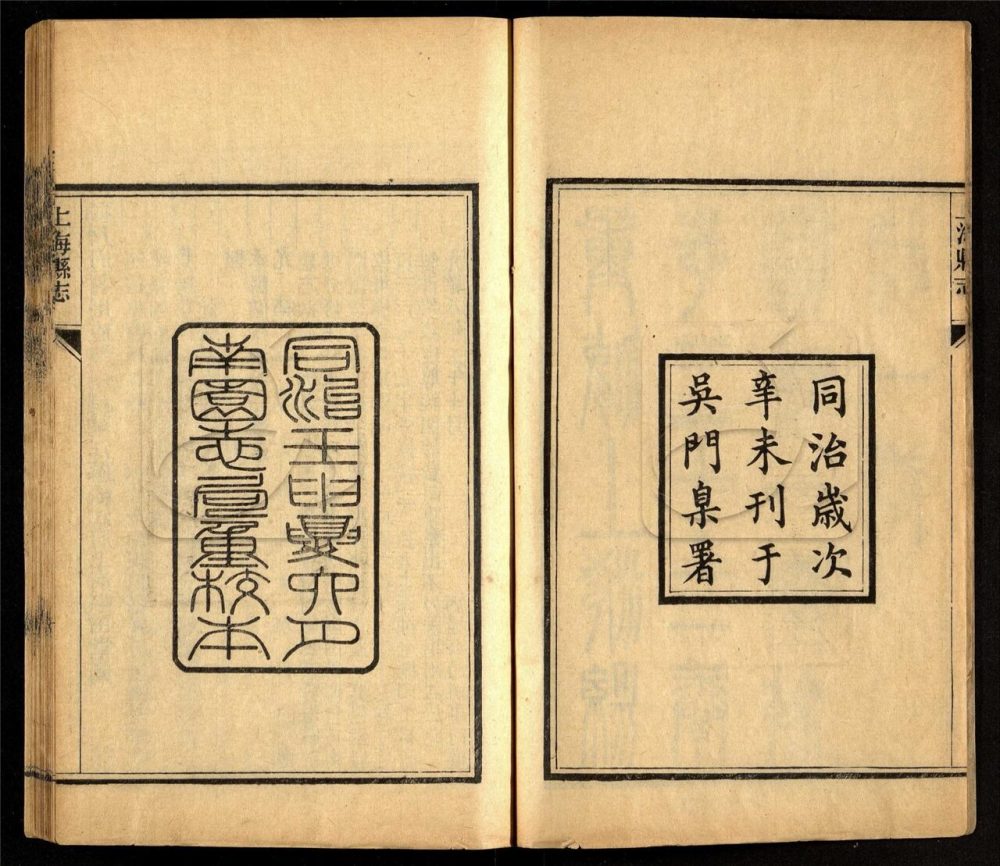 同治歲次
辛未刊于
吳門臬署
同治壬申夏六月
南園志局重校本
上海縣志